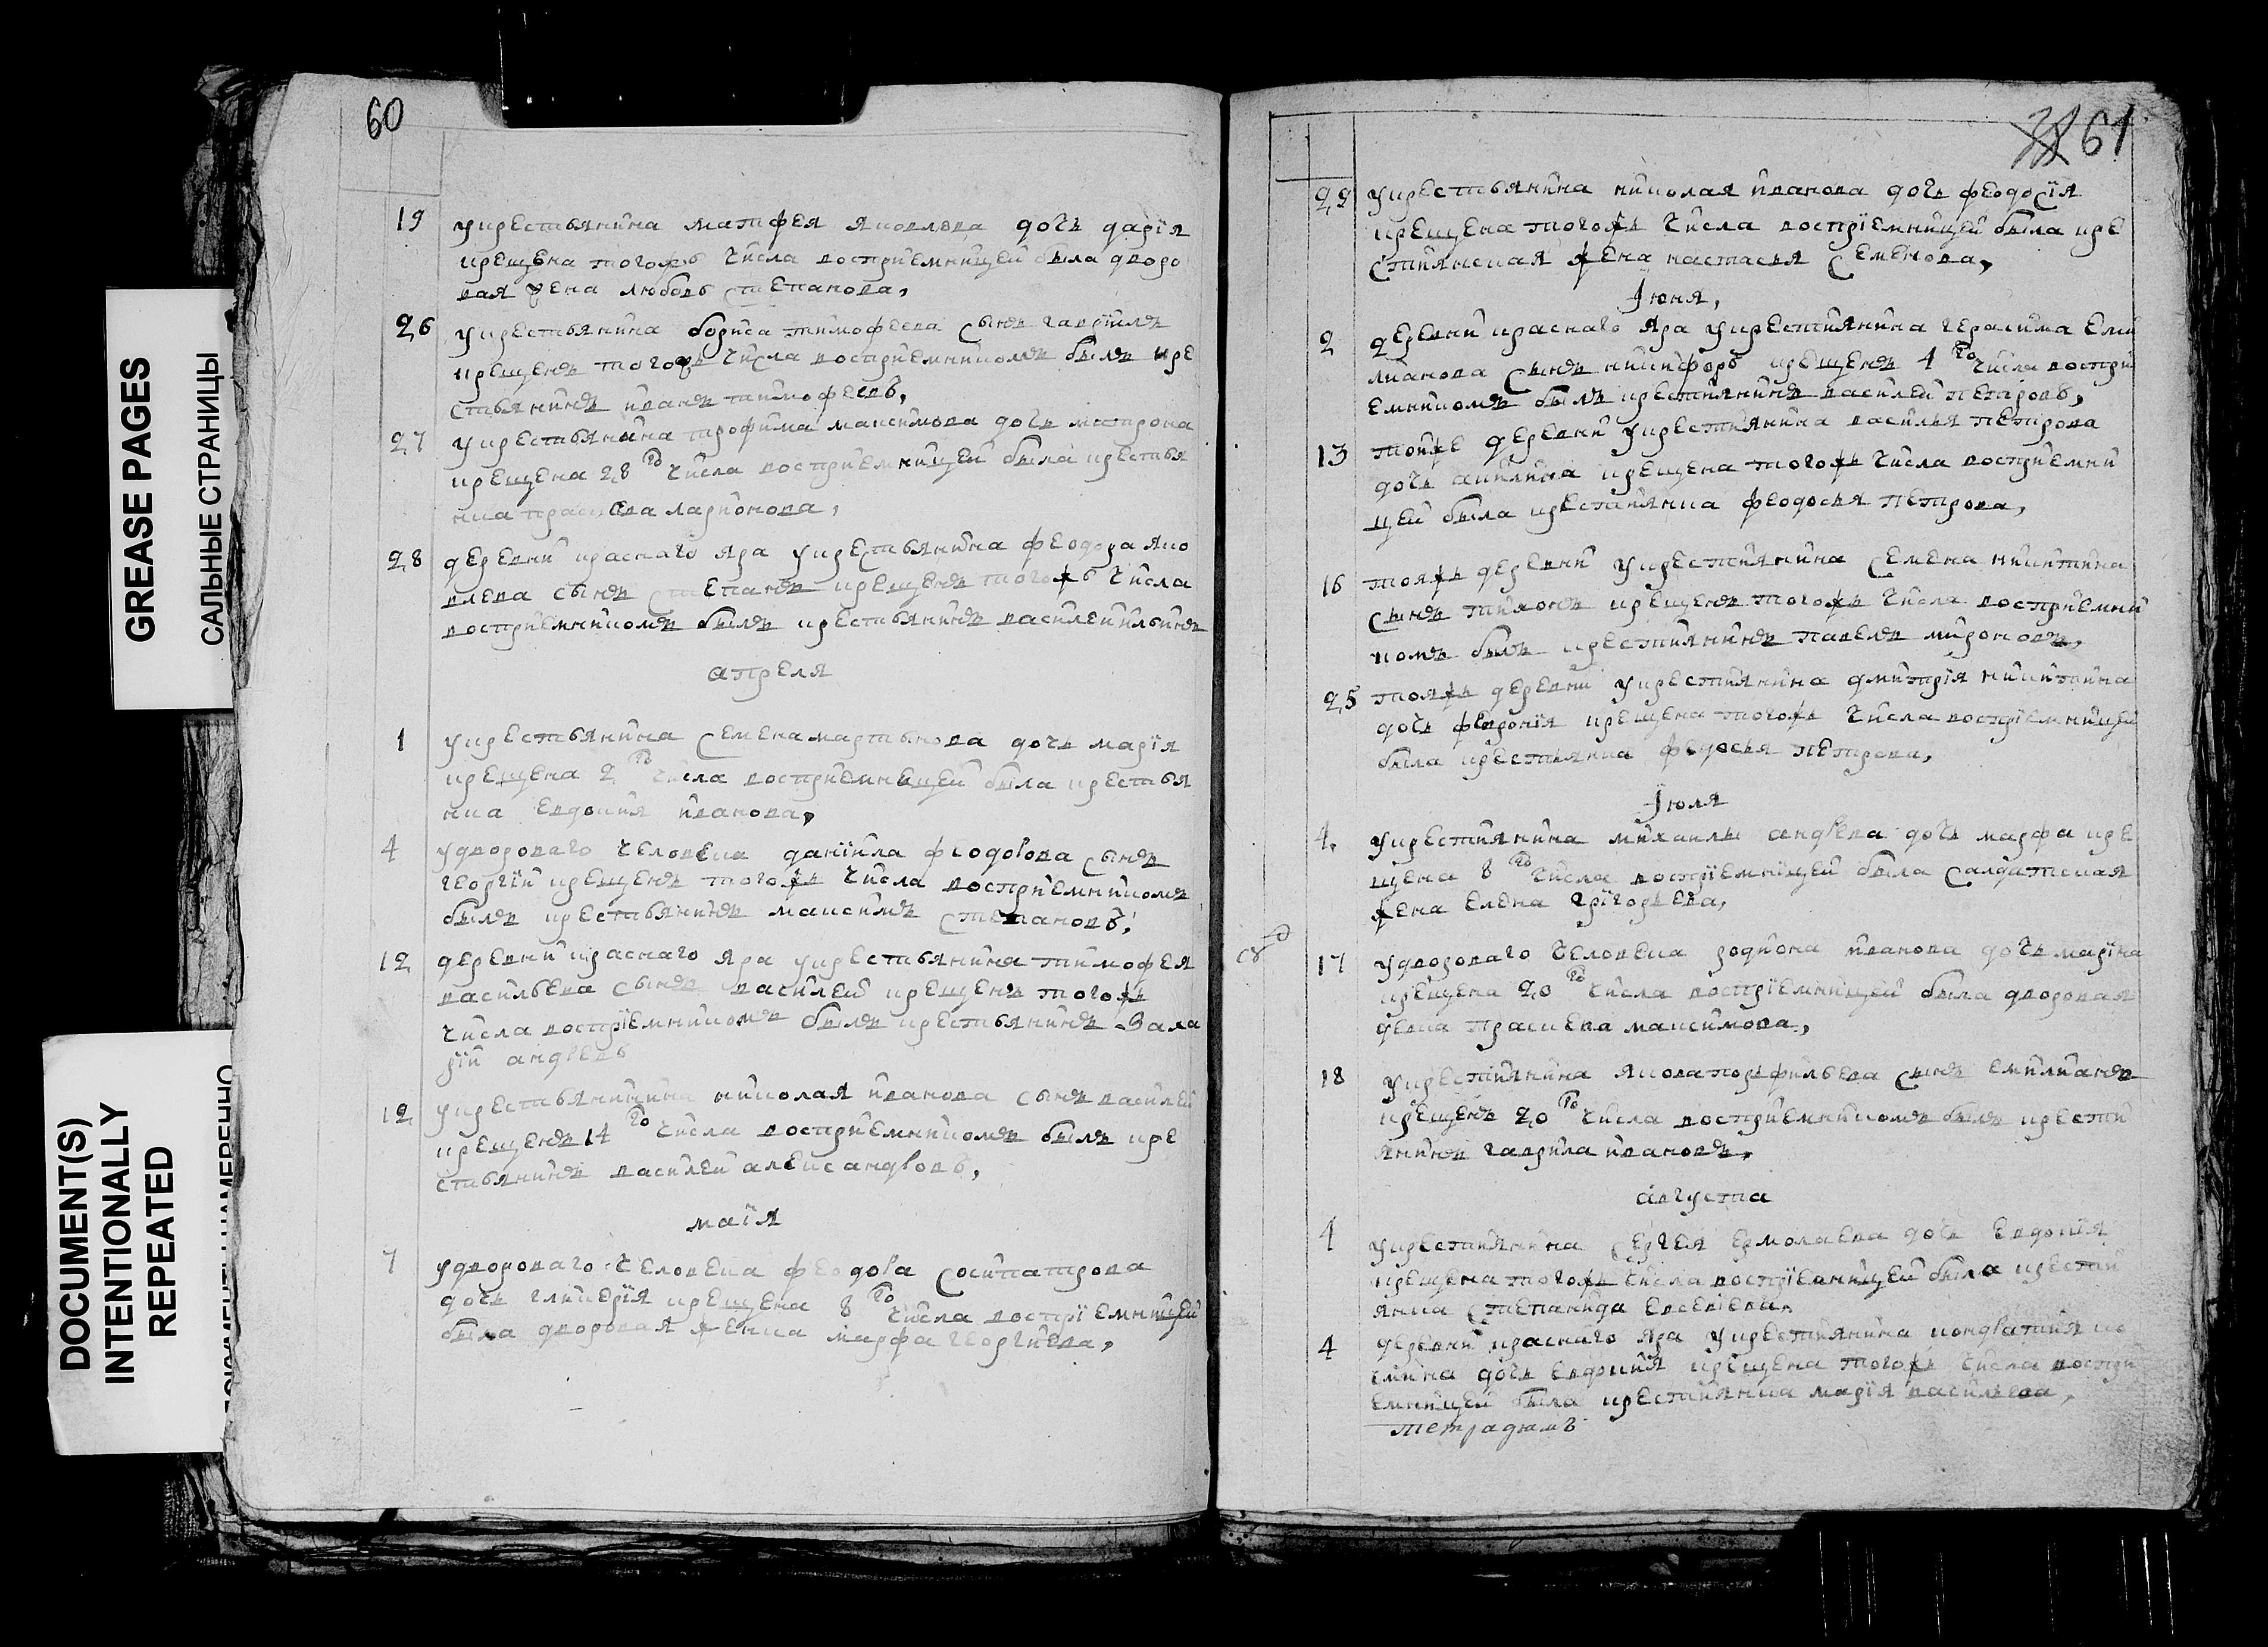 GREASE PAGES
САЛЬНЫЕ СТРАНИЦЫ
DOCUMENT(S)
INTENTIONALLY
REPEATED
60
19 укрестьянина матфея яковлева дочь дарїя
крещена тогожъ числа восприемницей была дворо
вая жена любовь степанова,
26 укрестьянина бориса тимофеева сынъ гаврїилъ
крещенъ тогожъ числа восприемникомъ былъ кре
стьянинъ иванъ тимофеевъ,
27 укрестьянина трофима максимова дочь матрона
крещена 28 го числа восприемницей была крестья
нка прасковa ларионова,
28 деревни краснаго яра укрестьянина феодора яко
влева сынъ степанъ крещенъ тогожъ числа
восприемникомъ былъ крестьянинъ василей ильинъ
апреля
1 укрестьянина семена мартынова дочь марїя
крещена 2 го числа восприемницей была крестья
нка евдокия иванова,
4 удвороваго человека данїила феодорова сынъ
георгїй крещенъ тогожъ числа восприемникомъ
былъ крестьянинъ максимъ степановъ,
12 деревни краснаго яра укрестьянина тимофея
васильева сынъ василей крещенъ тогожъ
числа воспрїемникомъ былъ крестьянинъ вала
рїй андреевъ
12 укрестьянина николая иванова сынъ василей
крещенъ 14 го числа восприемникомъ былъ кре
стьянинъ василей александровъ,
маїя
7 удвороваго человека феодора сосипатрова
дочь гликерїя крещена 8 го числа воспрїемницей
была дворовая женка марфа георгиева,
61
29 укрестьянина николая иванова дочь феодосїя
крещена тогожъ числа воспрїемницей была кре
стиянская жена настасья семенова,
Iюня,
2 деревни краснаго яра укрестиянина герасима еми
лианова сынъ никифоръ крещенъ 4 го числа воспри
емникомъ былъ крестиянинъ василей петровъ,
13 тойже деревни укрестиянина василья петрова
дочь акилина крещена тогожъ числа восприемни
цей была крестиянка феодосья петрова,
16 тояжъ деревни укрестиянина семена никитина
сынъ тихонъ крещенъ тогожъ числа восприемни
комъ былъ крестиянинъ павелъ мироновъ,
25 тояжъ деревни укрестиянина дмитрїя никитина
дочь феврония крещена тогожъ числа воспрїемницей
была крестьянка федосья петрова,
Iюля
4. укрестиянина михаилы андреева дочь марфа кре
щена 8 го числа воспрїемницей была салдатская
жена елена григорьева,
17 удвороваго человека родиона иванова дочь марїна
крещена 20 го числа воспрїемницей была дворовая
девка праскева максимова,
18 укрестиянина якова порфильева сынъ емилианъ
крещенъ 20 го числа восприемникомъ былъ крести
янинъ гаврила ивановъ,
августа
4 укрестиянина сергея ермолаева дочь евдокїя
крещена тогожъ числа воспрїемницей была крести
янка степанида евсевiева,
4 деревни краснаго яра укрестиянина кондратия ко
смина дочь евдокия крещена тогожъ числа воспри
емницей была крестиянка марїя васильева,
тетрадямъ